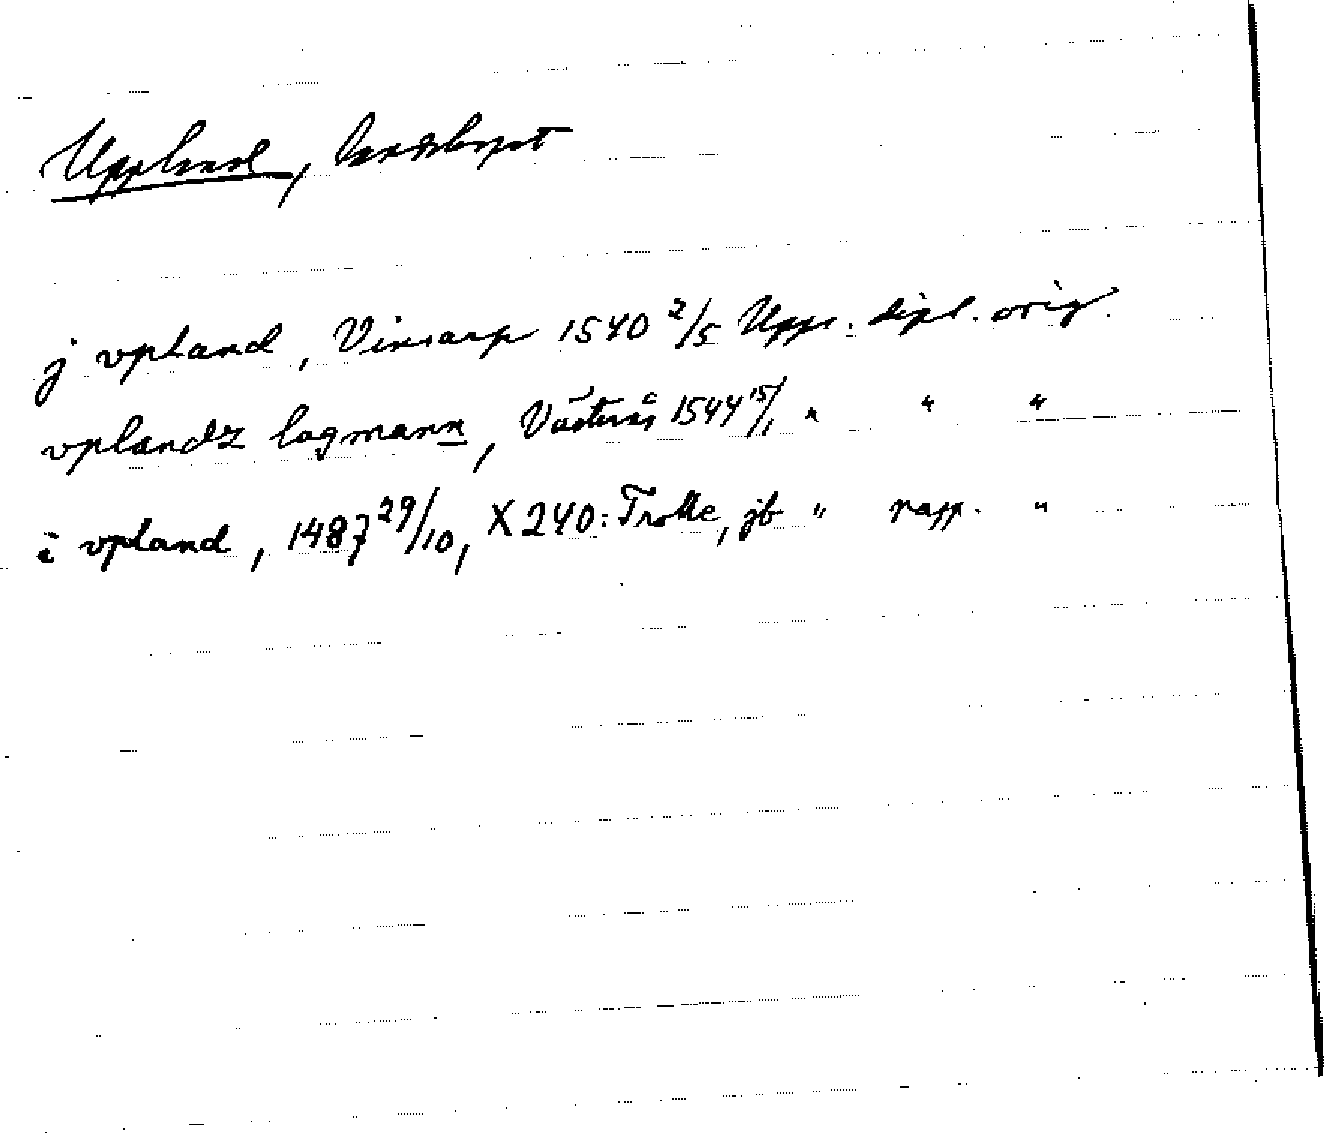 Uppland, landskapet
j vpland, Vinsarp 1540 2/5 Upps. dipl. orig.
vplandz lagmann, Västerås 1544 15/1 " " "
i vpland, 1487 29/10, X240: Trolle, jb " papp. "